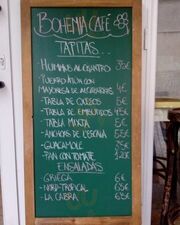 BOHEMIA CAFÉ
TAPITAS...
HUMMUS AL CILANTRO 3'5€
PUERRO ATÚN CON
MAYONESA DE ALCAPARRAS 4€
- TABLA DE QUESOS 5€
- TABLA DE EMBUTIDOS 5€
- TABLA MIXTA 5€
- ANCHOAS DE L'ESCALA 5'5€
- GUACAMOLE 3'5€
- PAN CON TOMATE 1'20€
ENSALADAS
- GRIEGA 6€
- NORD-TROPICAL 6'5€
- LA CABRA 6'5€